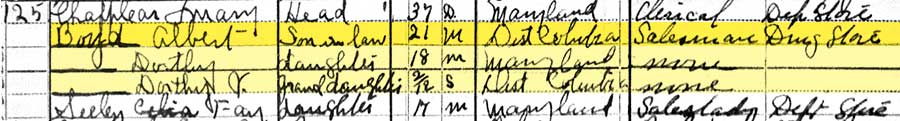 125 Chaplear Mary Head 37 D Maryland Clerical Dep Store
Boyd Albert Son in law 21 M Dist Columbia Salesman Drug Store
—— Dorthy daughter 18 M Maryland none
—— Dorthy V. granddaughter 2/12 S Dist Columbia none
Seeley Celia Fay daughter 17 M Maryland Saleslady Dept Store